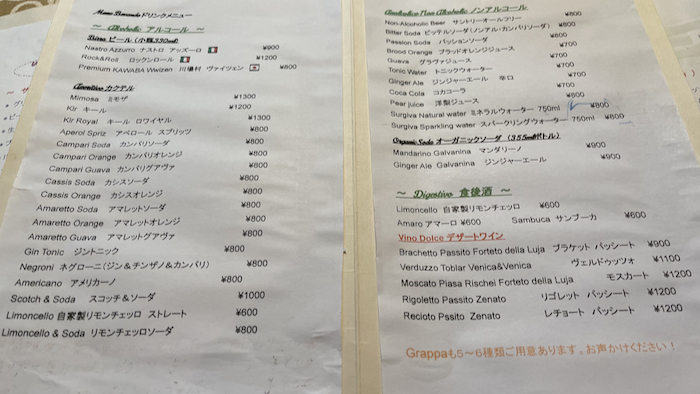 Menu Bevande ドリンクメニュー
～ Alcoholic アルコール ～
Birra ビール (小瓶330ml)
Nastro Azzurro ナストロ アッズーロ ¥900
Rock&Roll ロックンロール ¥1200
Premium KAWABA Wwizen 川場村 ヴァイツェン ¥800
Aperitivo カクテル
Mimosa ミモザ ¥1300
Kir キール ¥1200
Kir Royal キール ロワイヤル ¥1300
Aperol Spriz アペロール スプリッツ ¥800
Campari Soda カンパリソーダ ¥800
Campari Orange カンパリオレンジ ¥800
Campari Guava カンパリグアヴァ ¥800
Cassis Soda カシスソーダ ¥800
Cassis Orange カシスオレンジ ¥800
Amaretto Soda アマレットソーダ ¥800
Amaretto Orange アマレットオレンジ ¥800
Amaretto Guava アマレットグアヴァ ¥800
Gin Tonic ジントニック ¥800
Negroni ネグローニ(ジン&チンザノ&カンパリ) ¥800
Americano アメリカーノ ¥800
Scotch & Soda スコッチ&ソーダ ¥1000
Limoncello 自家製リモンチェッロ ストレート ¥600
Limoncello & Soda リモンチェッロソーダ ¥800
Analcolico Non Alcoholic ノンアルコール
Non-Alcoholic Beer サントリーオールフリー ¥600
Bitter Soda ビッテルソーダ(ノンアル・カンパリソーダ) ¥800
Passion Soda パッションソーダ ¥800
Brood Orange ブラッドオレンジジュース ¥700
Guava グラヴァジュース ¥700
Tonic Water トニックウォーター ¥700
Ginger Ale ジンジャーエール 辛口 ¥700
Coca Cola コカコーラ ¥700
Pear juice 洋梨ジュース ¥800
Surgiva Natural water ミネラルウォーター 750ml ¥800
Surgiva Sparkling water スパークリングウォーター 750ml ¥800
Organic Soda オーガニックソーダ (355mlボトル)
Mandarino Galvanina マンダリーノ ¥900
Ginger Ale Galvanina ジンジャーエール ¥900
～ Digestivo 食後酒 ～
Limoncello 自家製リモンチェッロ ¥600
Amaro アマーロ ¥600 Sambuca サンブーカ ¥600
Vino Dolce デザートワイン
Brachetto Passito Forteto della Luja ブラケット パッシート ¥900
Verduzzo Toblar Venica&Venica ヴェルドゥッツォ ¥1100
Moscato Piasa Rischei Forteto della Luja モスカート ¥1200
Rigoletto Passito Zenato リゴレット パッシート ¥1200
Recioto Pssito Zenato レチョート パッシート ¥1200
Grappaも5～6種類ご用意あります。お声かけください！